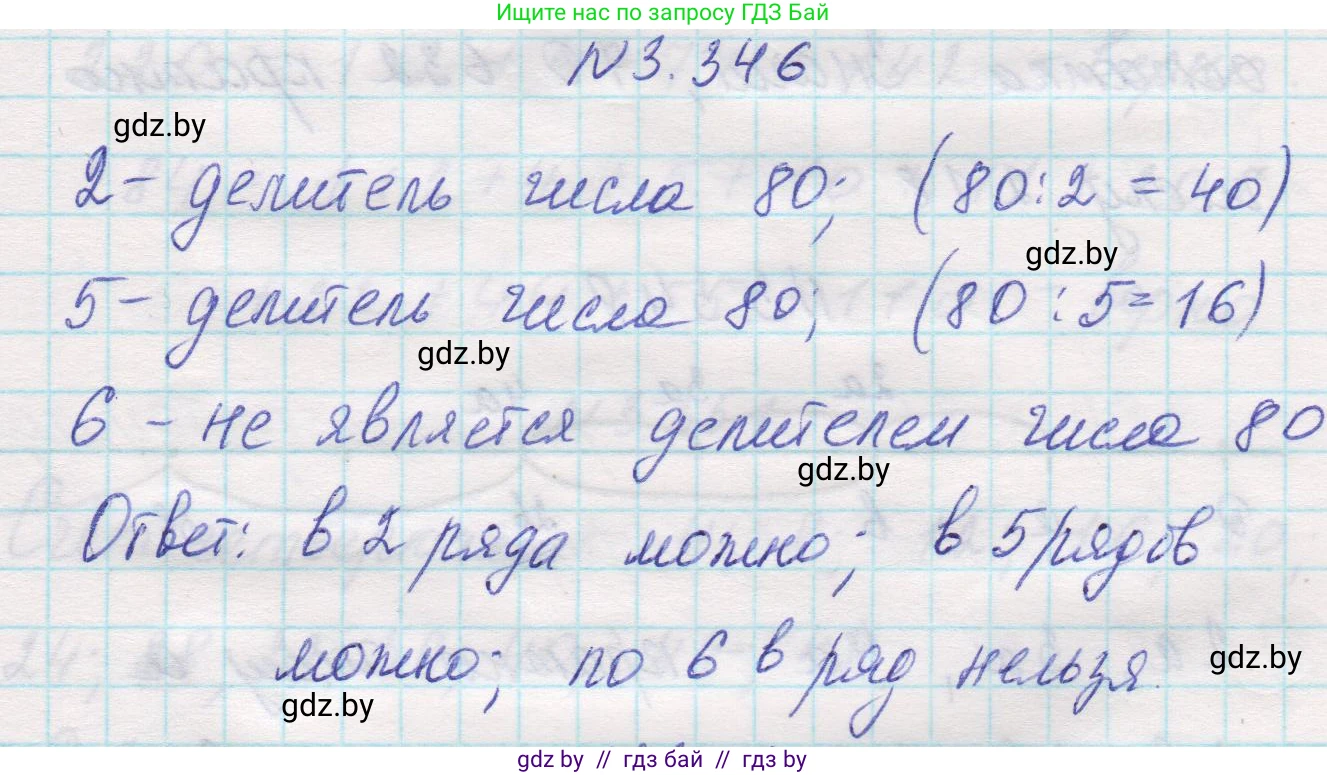 Ищите нас по запросу ГДЗ Бай
N 3.346
gdz.by
2 - делитель числа 80; (80:2 = 40)
gdz.by
5 - делитель числа 80; (80:5=16)
gdz.by
6 - не является делителем числа 80
gdz.by
Ответ: в 2 ряда можно; в 5 рядов
можно; по 6 в ряд нельзя.
gdz.by
gdz.by
gdz by // гдз бай // гдз by